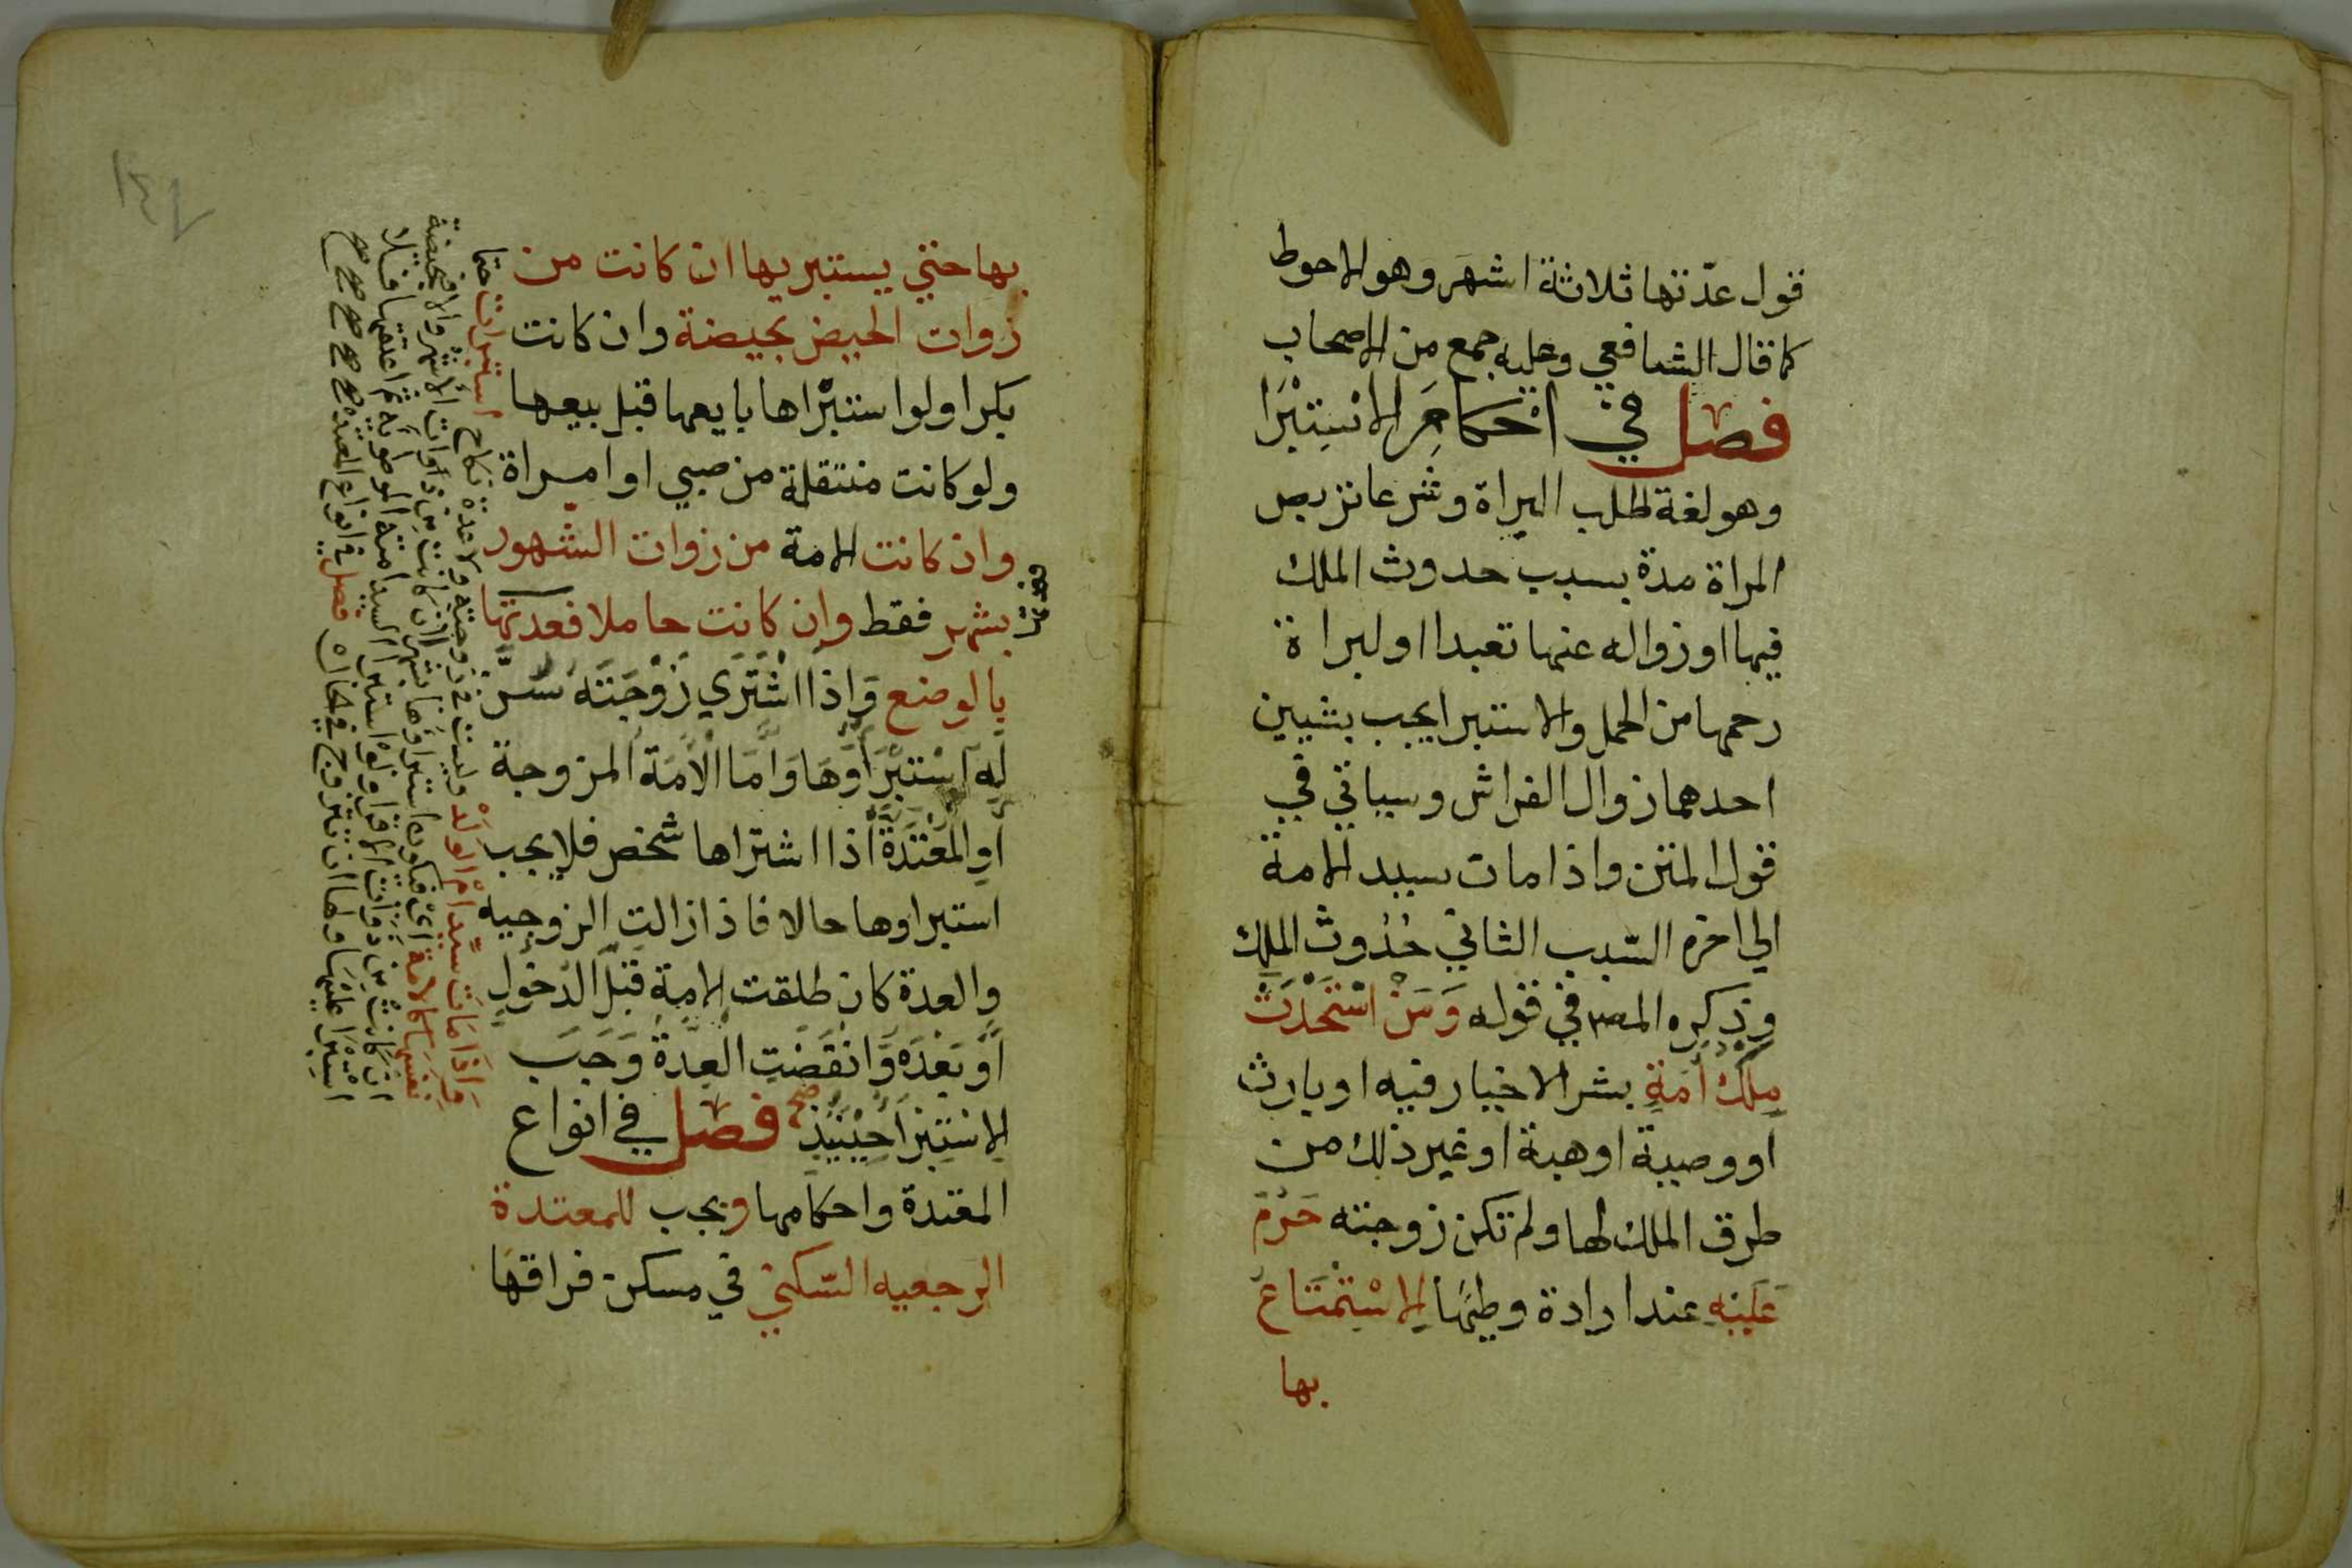 قول عدّتها ثلاثة اشهر وهو الاحوط
كما قال الشافعي وعليه جمع من الاصحاب
فصل في احكام الاستبرا
وهو لغة طلب البراة وشرعا تربص
المراة مدة بسبب حدوث الملك
فيها او زواله عنها تعبدا او لبراة
رحمها من الحمل والاستبرا يجب بشيين
احدهما زوال الفراش وسياتي في
قول المتن واذا مات سيد الامة
الي اخره السّبب الثاني حُدُوث الملك
وذكره المصر في قوله وَمَن اسْتَحْدَثَ
مِلْكَ أمَةٍ بشر الاخيار فيه او بارث
او وصية او هبة او غير ذلك من
طرق الملك لها ولم تكن زوجته حَرُمَ
عَلَيْهِ عند ارادة وطيها الاسْتِمْتَاعُ
بها
١٤٦
بها حتي يستبريها ان كانت من
زوات الحيض بحيضة وان كانت
بكرا ولو استبْراها بايعها قبل بيعها
ولو كانت منتقلة من صبي او امراة
وان كانت الامة من زوات الشّهور
بشهر فقط وان كانت حاملا فعدتها
بالوضع وَاِذَا اشْتَرَي زَوْجَتَهُ سُنَّ
لَهُ اسْتبْرَاوُهَا وَامَا الاَمَة المزوجة
او المُعْتَدَّة اذا اشتراها شخص فلا يجب
استبراوها حالا فاذا زالت الزوجيه
والعدة كان طلقت الامة قَبْلَ الدّخولِ
اَوْ بَعْدَهُ وَانْقَضَتِ العِدَّةُ وَجَبَ
الاسْتِبْرَا حِيْنَيْذٍ صح فصل في انواع
المعتدة واحكامها ويجب للمعتدة
الرجعيه السّكني في مسكن فراقها
وَاِذَا مَات سَيِّد اُمّ الوَلَدْ وليست في زوجته ولا عدة نكاح استبرات حتما
نفسها كالامة اي فيكون استبراوها بشهر ان كانت من ذوات الاشهر والا فبحيضة
ان كانت من ذوات الاقرا ولو استبرا السيد امته الموطوأة ثم اعتقها فلا
استبرا عليها ولها ان تتزوج في الحال فصل في انواع المعتدة صح صح صح صح